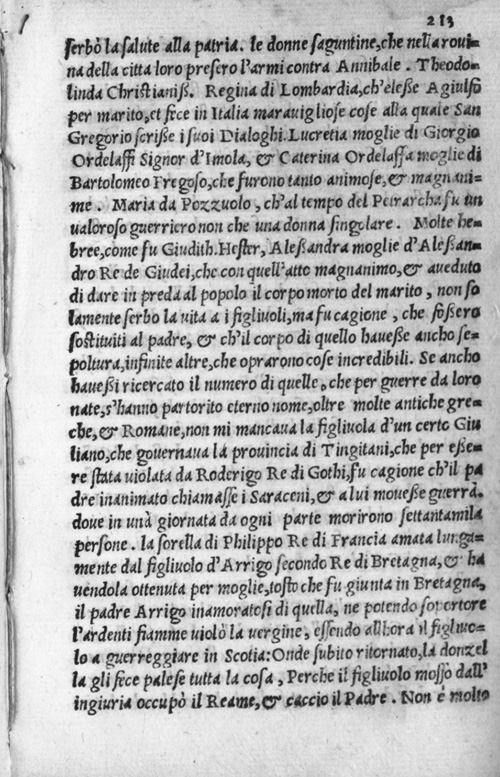 213
serbò la salute alla patria. le donne saguntine, che nella roui-
na della citta loro presero l'armi contra Annibale. Theodo-
linda Christianiß. Regina di Lombardia, ch'eleße Agiulfo
per marito, et fece in Italia marauigliose cose alla quale San
Gregorio scriße i suoi Dialoghi. Lucretia moglie di Giorgio
Ordelaffi Signor d'Imola, & Caterina Ordelaffa moglie di
Bartolomeo Fregoso, che furono tanto animose, & magnani-
me. Maria da Pozzuolo, ch'al tempo del Petrarcha fu un
ualoroso guerriero non che una donna singolare. Molte he-
bree, come fu Giudith. Hester, Aleßandra moglie d'Aleßan-
dro Re de Giudei, che con quell'atto magnanimo, & aueduto
di dare in preda al popolo il corpo morto del marito, non so
lamente serbo la uita a i figliuoli, ma fu cagione, che foßero
sostituiti al padre, & ch'il corpo di quello haueße ancho se-
poltura, infinite altre, che oprarono cose incredibili. Se ancho
haueßi ricercato il numero di quelle, che per guerre da loro
nate, s'hanno partorito eterno nome, oltre molte antiche gre-
che, & Romane, non mi mancaua la figliuola d'un certo Giu
liano, che gouernaua la prouincia di Tingitani, che per eße-
re stata uiolata da Roderigo Re di Gothi, fu cagione ch'il pa
dre inanimato chiamaße i Saraceni, & a lui moueße guerra.
doue in una giornata da ogni parte morirono settantamila
persone. la sorella di Philippo Re di Francia amata lunga-
mente dal figliuolo d'Arrigo secondo Re di Bretagna, & ha
uendola ottenuta per moglie, tosto che fu giunta in Bretagna,
il padre Arrigo inamoratosi di quella, ne potendo sopertore
l'ardenti fiamme uiolò la uergine, essendo allhora il figliuo-
lo a guerreggiare in Scotia: Onde subito ritornato, la donzel
la gli fece palese tutta la cosa, Perche il figliuolo moßo dall'
ingiuria occupò il Reame, & caccio il Padre. Non è molto